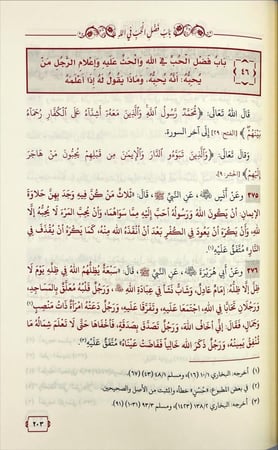 بَابُ فَضْلِ الحُبِّ فِي اللهِ
٤٦
بَابُ فَضْلِ الحُبِّ فِي اللهِ وَالحَثِّ عَلَيهِ وَإِعْلَامِ الرَّجُلِ مَنْ
يُحِبُّهُ: أَنَّهُ يُحِبُّهُ، وَمَاذَا يَقُولُ لَهُ إِذَا أَعْلَمَهُ
قَالَ اللهُ تَعَالَى: ﴿مُّحَمَّدٌ رَّسُولُ اللَّهِ وَالَّذِينَ مَعَهُ أَشِدَّاءُ عَلَى الْكُفَّارِ رُحَمَاءُ
بَيْنَهُمْ﴾ [الفتح: ٢٩] إِلَى آخِرِ السورة.
وَقَالَ تَعَالَى: ﴿وَالَّذِينَ تَبَوَّءُو الدَّارَ وَالْإِيمَانَ مِن قَبْلِهِمْ يُحِبُّونَ مَنْ هَاجَرَ
إِلَيْهِمْ﴾ [الحشر: ٩].
٣٧٥ وَعَنْ أَنَسٍ ﷺ، عَنِ النَّبِيِّ ﷺ، قَالَ: «ثَلَاثٌ مَنْ كُنَّ فِيهِ وَجَدَ بِهِنَّ حَلَاوَةَ
الإِيمَانِ: أَنْ يَكُونَ اللهُ وَرَسُولُهُ أَحَبَّ إِلَيْهِ مِمَّا سِوَاهُمَا، وَأَنْ يُحِبَّ المَرْءَ لَا يُحِبُّهُ إِلَّا
لِلَّهِ، وَأَنْ يَكْرَهَ أَنْ يَعُودَ فِي الكُفْرِ بَعْدَ أَنْ أَنْقَذَهُ اللهُ مِنْهُ، كَمَا يَكْرَهُ أَنْ يُقْذَفَ فِي
النَّارِ» مُتَّفَقٌ عَلَيْهِ(١).
٣٧٦ وَعَنْ أَبِي هُرَيْرَةَ، عَنِ النَّبِيِّ ﷺ، قَالَ: «سَبْعَةٌ يُظِلُّهُمُ اللهُ فِي ظِلِّهِ يَوْمَ لَا
ظِلَّ إِلَّا ظِلُّهُ: إِمَامٌ عَادِلٌ، وَشَابٌّ نَشَأَ فِي عِبَادَةِ اللهِ، وَرَجُلٌ قَلْبُهُ مُعَلَّقٌ بِالمَسَاجِدِ،
وَرَجُلَانِ تَحَابَّا فِي اللهِ، اجْتَمَعَا عَلَيْهِ، وَتَفَرَّقَا عَلَيْهِ، وَرَجُلٌ دَعَتْهُ امْرَأَةٌ ذَاتُ مَنْصِبٍ
وَجَمَالٍ، فَقَالَ: إِنِّي أَخَافُ اللهَ، وَرَجُلٌ تَصَدَّقَ بِصَدَقَةٍ، فَأَخْفَاهَا حَتَّى لَا تَعْلَمَ شِمَالُهُ مَا
تُنْفِقُ يَمِينُهُ، وَرَجُلٌ ذَكَرَ اللهَ خَالِيًا فَفَاضَتْ عَيْنَاهُ» مُتَّفَقٌ عَلَيْهِ(٣).
(١) أخرجه: البخاري ١٠/١ (١٦)، ومسلم ٤٨/١ (٤٣) (٦٧).
(٢) في بعض المطبوع: «حُسْنٍ» خطأ، والمثبت من الأصل والصحيحين.
(٣) أخرجه: البخاري ١٣٨/٢ (١٤٢٣)، ومسلم ٩٣/٣ (١٠٣١) (٩١).
٢٠٣